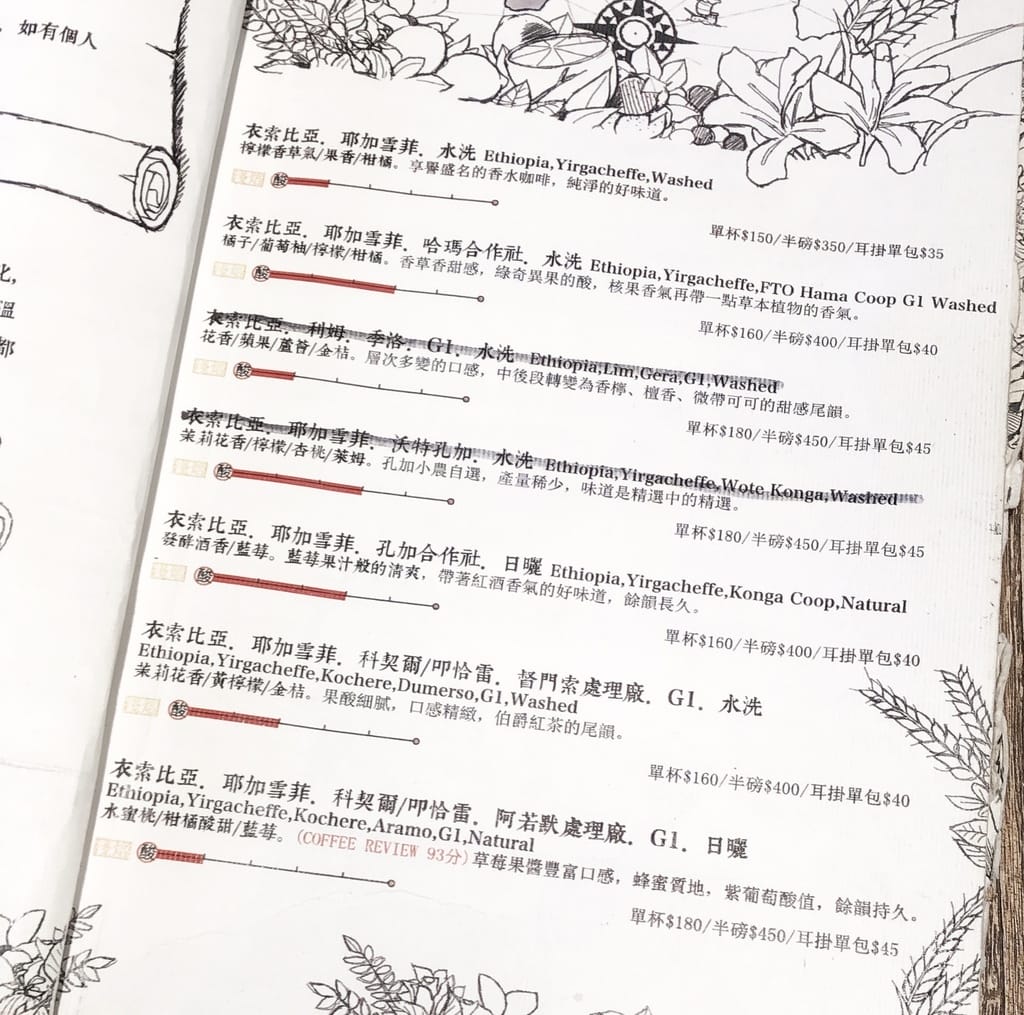 如有個人
衣索比亞．耶加雪菲．水洗 Ethiopia,Yirgacheffe,Washed
檸檬香草氣/果香/柑橘。享譽盛名的香水咖啡，純淨的好味道。
酸
單杯$150/半磅$350/耳掛單包$35
衣索比亞．耶加雪菲．哈瑪合作社．水洗 Ethiopia,Yirgacheffe,FTO Hama Coop G1 Washed
橘子/葡萄柚/檸檬/柑橘。香草香甜感，綠奇異果的酸，核果香氣再帶一點草本植物的香氣。
酸
單杯$160/半磅$400/耳掛單包$40
衣索比亞．利姆．季洛．G1．水洗 Ethiopia,Lim,Gera,G1,Washed
花香/蘋果/蘆薈/金桔。層次多變的口感，中後段轉變為香檸、檀香、微帶可可的甜感尾韻。
酸
單杯$180/半磅$450/耳掛單包$45
衣索比亞．耶加雪菲．沃特孔加．水洗 Ethiopia,Yirgacheffe,Wote Konga,Washed
茉莉花香/檸檬/杏桃/萊姆。孔加小農自選，產量稀少，味道是精選中的精選。
酸
單杯$180/半磅$450/耳掛單包$45
衣索比亞．耶加雪菲．孔加合作社．日曬 Ethiopia,Yirgacheffe,Konga Coop,Natural
發酵酒香/藍莓。藍莓果汁般的清爽，帶著紅酒香氣的好味道，餘韻長久。
酸
單杯$160/半磅$400/耳掛單包$40
衣索比亞．耶加雪菲．科契爾/叩恰雷．督門索處理廠．G1．水洗
Ethiopia,Yirgacheffe,Kochere,Dumerso,G1,Washed
茉莉花香/黃檸檬/金桔。果酸細膩，口感精緻，伯爵紅茶的尾韻。
酸
單杯$160/半磅$400/耳掛單包$40
衣索比亞．耶加雪菲．科契爾/叩恰雷．阿若默處理廠．G1．日曬
Ethiopia,Yirgacheffe,Kochere,Aramo,G1,Natural
水蜜桃/柑橘酸甜/藍莓。(COFFEE REVIEW 93分)草莓果醬豐富口感，蜂蜜質地，紫葡萄酸值，餘韻持久。
酸
單杯$180/半磅$450/耳掛單包$45